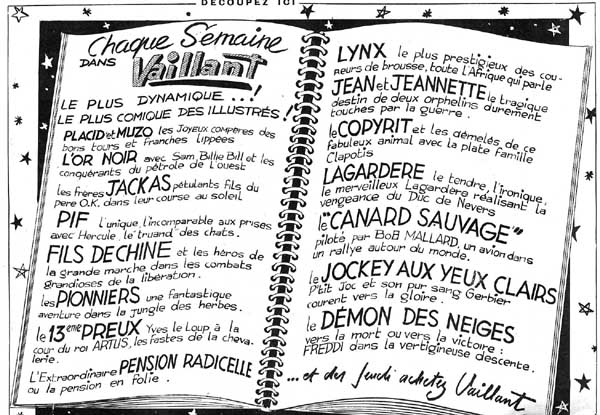 DÉCOUPEZ ICI
Chaque Semaine
DANS Vaillant
LE PLUS DYNAMIQUE...!
LE PLUS COMIQUE DES ILLUSTRÉS!
PLACID et MUZO les Joyeux compères des
bons tours et franches lippées
L'OR NOIR avec Sam, Billie Bill et les
conquérants du pétrole de l'ouest
les frères JACKAS pétulants fils du
père O.K. dans leur course au soleil
PIF l'unique, l'incomparable aux prises
avec Hercule, le "truand" des chats.
FILS DE CHINE et les héros de
la grande marche dans les combats
grandioses de la libération.
les PIONNIERS une fantastique
aventure dans la jungle des herbes.
le 13ème PREUX Yves le Loup à la
cour du roi ARTUS, les fastes de la cheva-
lerie.
L'Extraordinaire PENSION RADICELLE
ou la pension en folie.
LYNX le plus prestigieux des cou-
reurs de brousse, toute l'Afrique qui parle
JEAN et JEANNETTE le tragique
destin de deux orphelins durement
touchés par la guerre.
le COPYRIT et les démelés de ce
fabuleux animal avec la plate famille
Clapotis
LAGARDERE le tendre, l'ironique,
le merveilleux Lagardère réalisant la
vengeance du Duc de Nevers
le "CANARD SAUVAGE"
piloté par BOB MALLARD, un avion dans
un rallye autour du monde.
le JOCKEY AUX YEUX CLAIRS
P'tit Joc et son pur sang Gerbier
courent vers la gloire.
le DÉMON DES NEIGES
vers la mort ou vers la victoire:
FREDDI dans la vertigineuse descente.
...et dès Jeudi achetez Vaillant